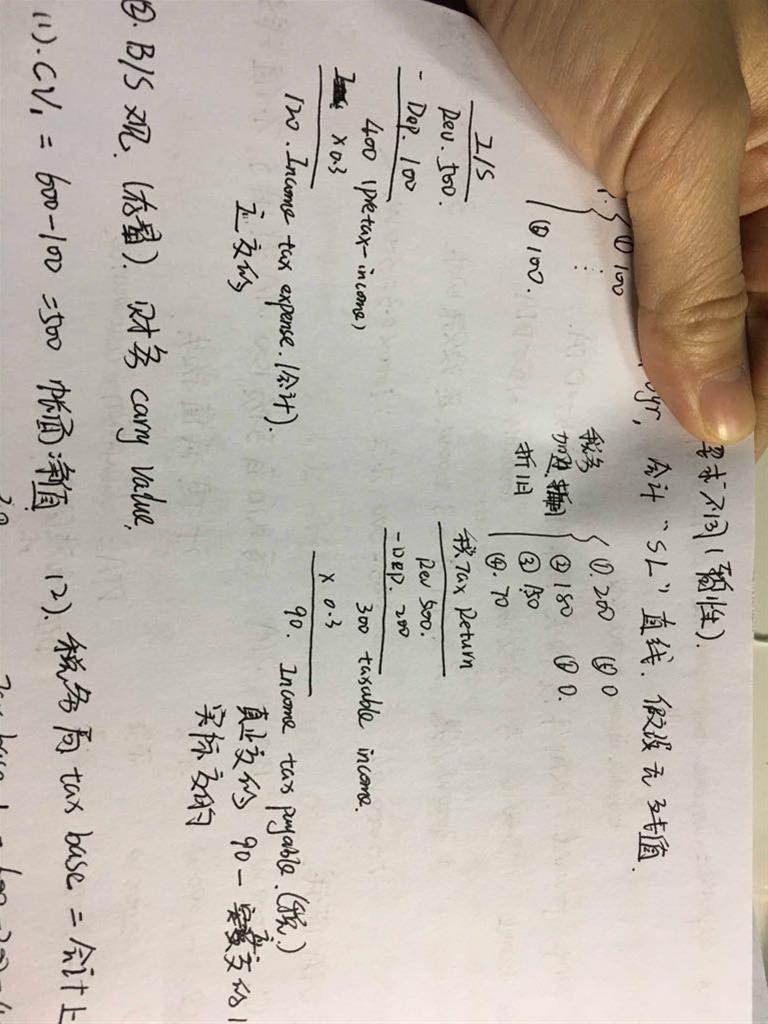 要求不同(
yr, 会计 "SL" 直线. 假设无残值.
① 100
⋮
⑥ 100.
税务
加速
折旧
①. 200 ⑤ 0
② 180 ⑥ 0.
③ 150
④. 70
I/S
Rev. 500.
- Dep. 100
400 (pretax-income)
x 0.3
120. Income tax expense. (会计).
税 Tax Return
Rev 500.
- Dep. 200
300 taxable income.
x 0.3
90. Income tax payable. (税.)
真正交的 90 -
实际交的
②. B/S 观. (存量). 财务 carry value,
(1). CV₁ = 600-100 = 500 帐面净值
(2). 税务局 tax base = 会计上
Tax base 1 = 600-200 = 4